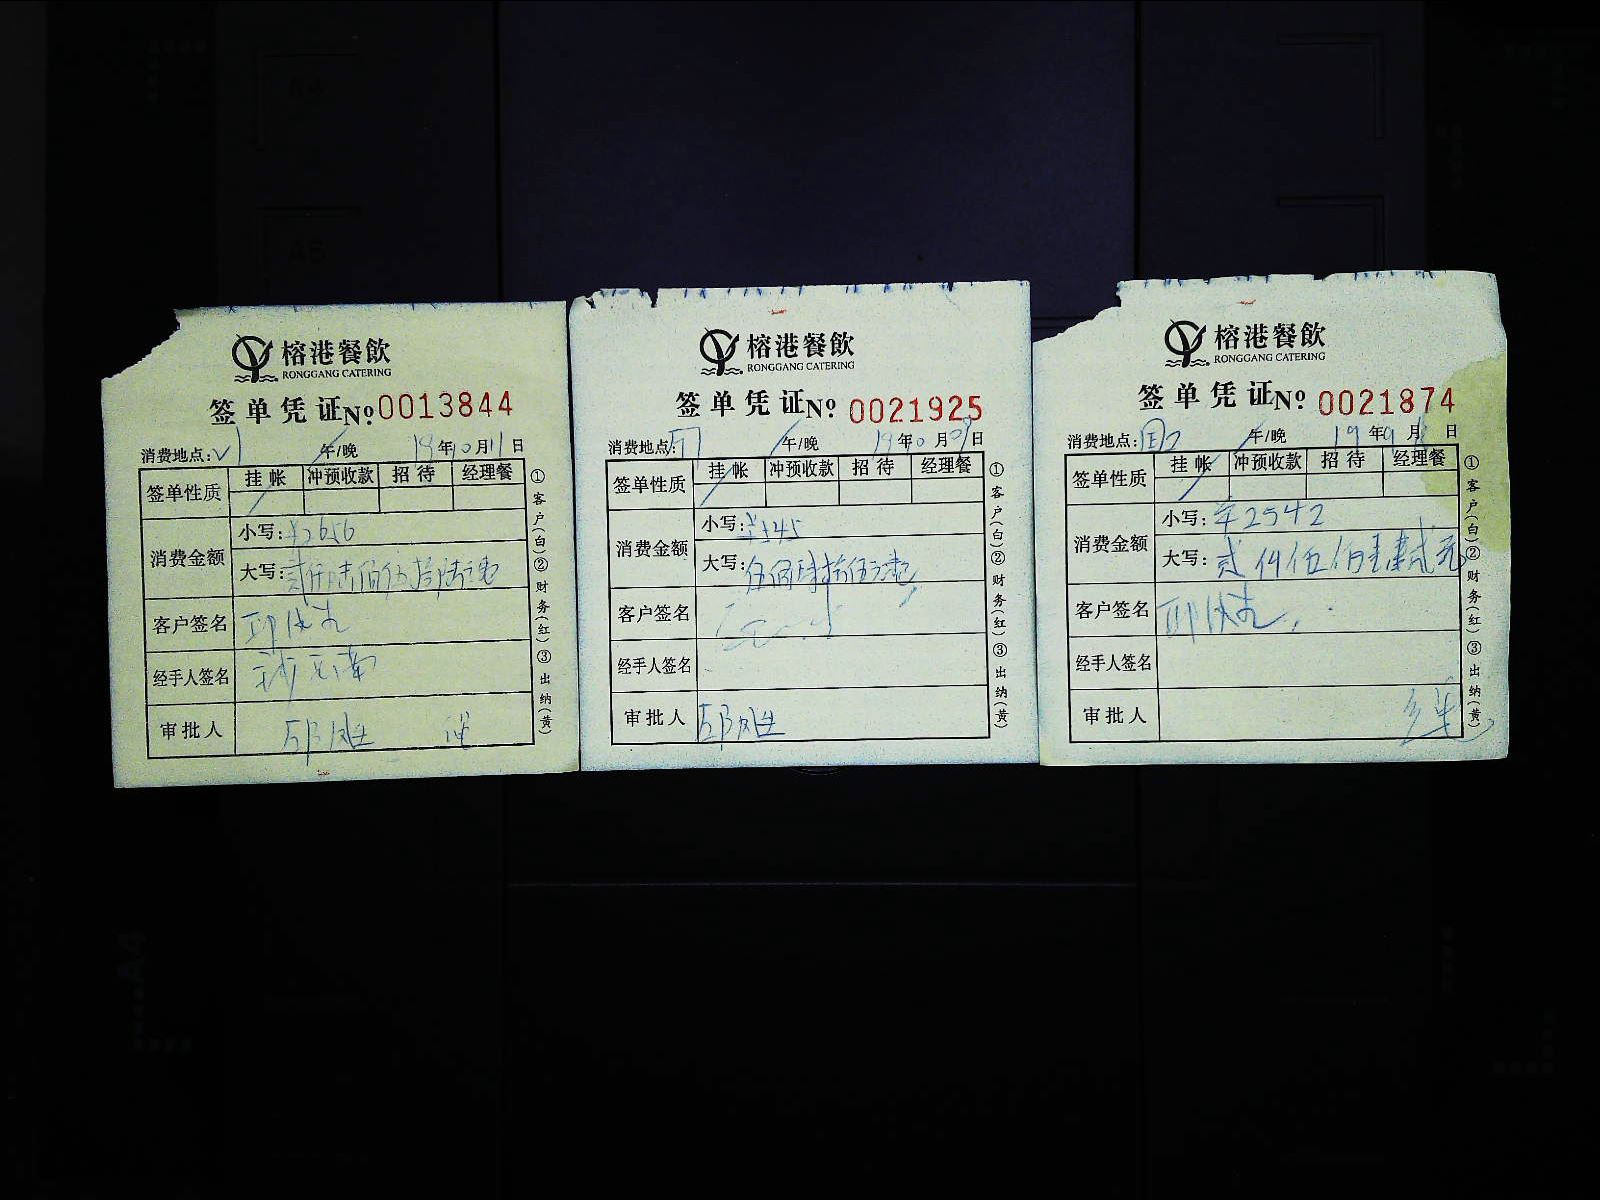 榕港餐飲
RONGGANG CATERING
签单凭证 No 0013844
消费地点: 午/晚 19年10月11日
签单性质 挂帐 冲预收款 招待 经理餐
消费金额
小写: ¥2656
大写: 贰仟陆佰伍拾陆元整
客户签名
经手人签名
审批人
①客户(白)②财务(红)③出纳(黄)
榕港餐飲
RONGGANG CATERING
签单凭证 No 0021925
消费地点: 午/晚 19年10月09日
签单性质 挂帐 冲预收款 招待 经理餐
消费金额
小写: ¥545
大写: 伍佰肆拾伍元整
客户签名
经手人签名
审批人
①客户(白)②财务(红)③出纳(黄)
榕港餐飲
RONGGANG CATERING
签单凭证 No 0021874
消费地点: 午/晚 19年9月 日
签单性质 挂帐 冲预收款 招待 经理餐
消费金额
小写: ¥2542
大写: 贰仟伍佰肆拾贰元
客户签名
经手人签名
审批人
①客户(白)②财务(红)③出纳(黄)